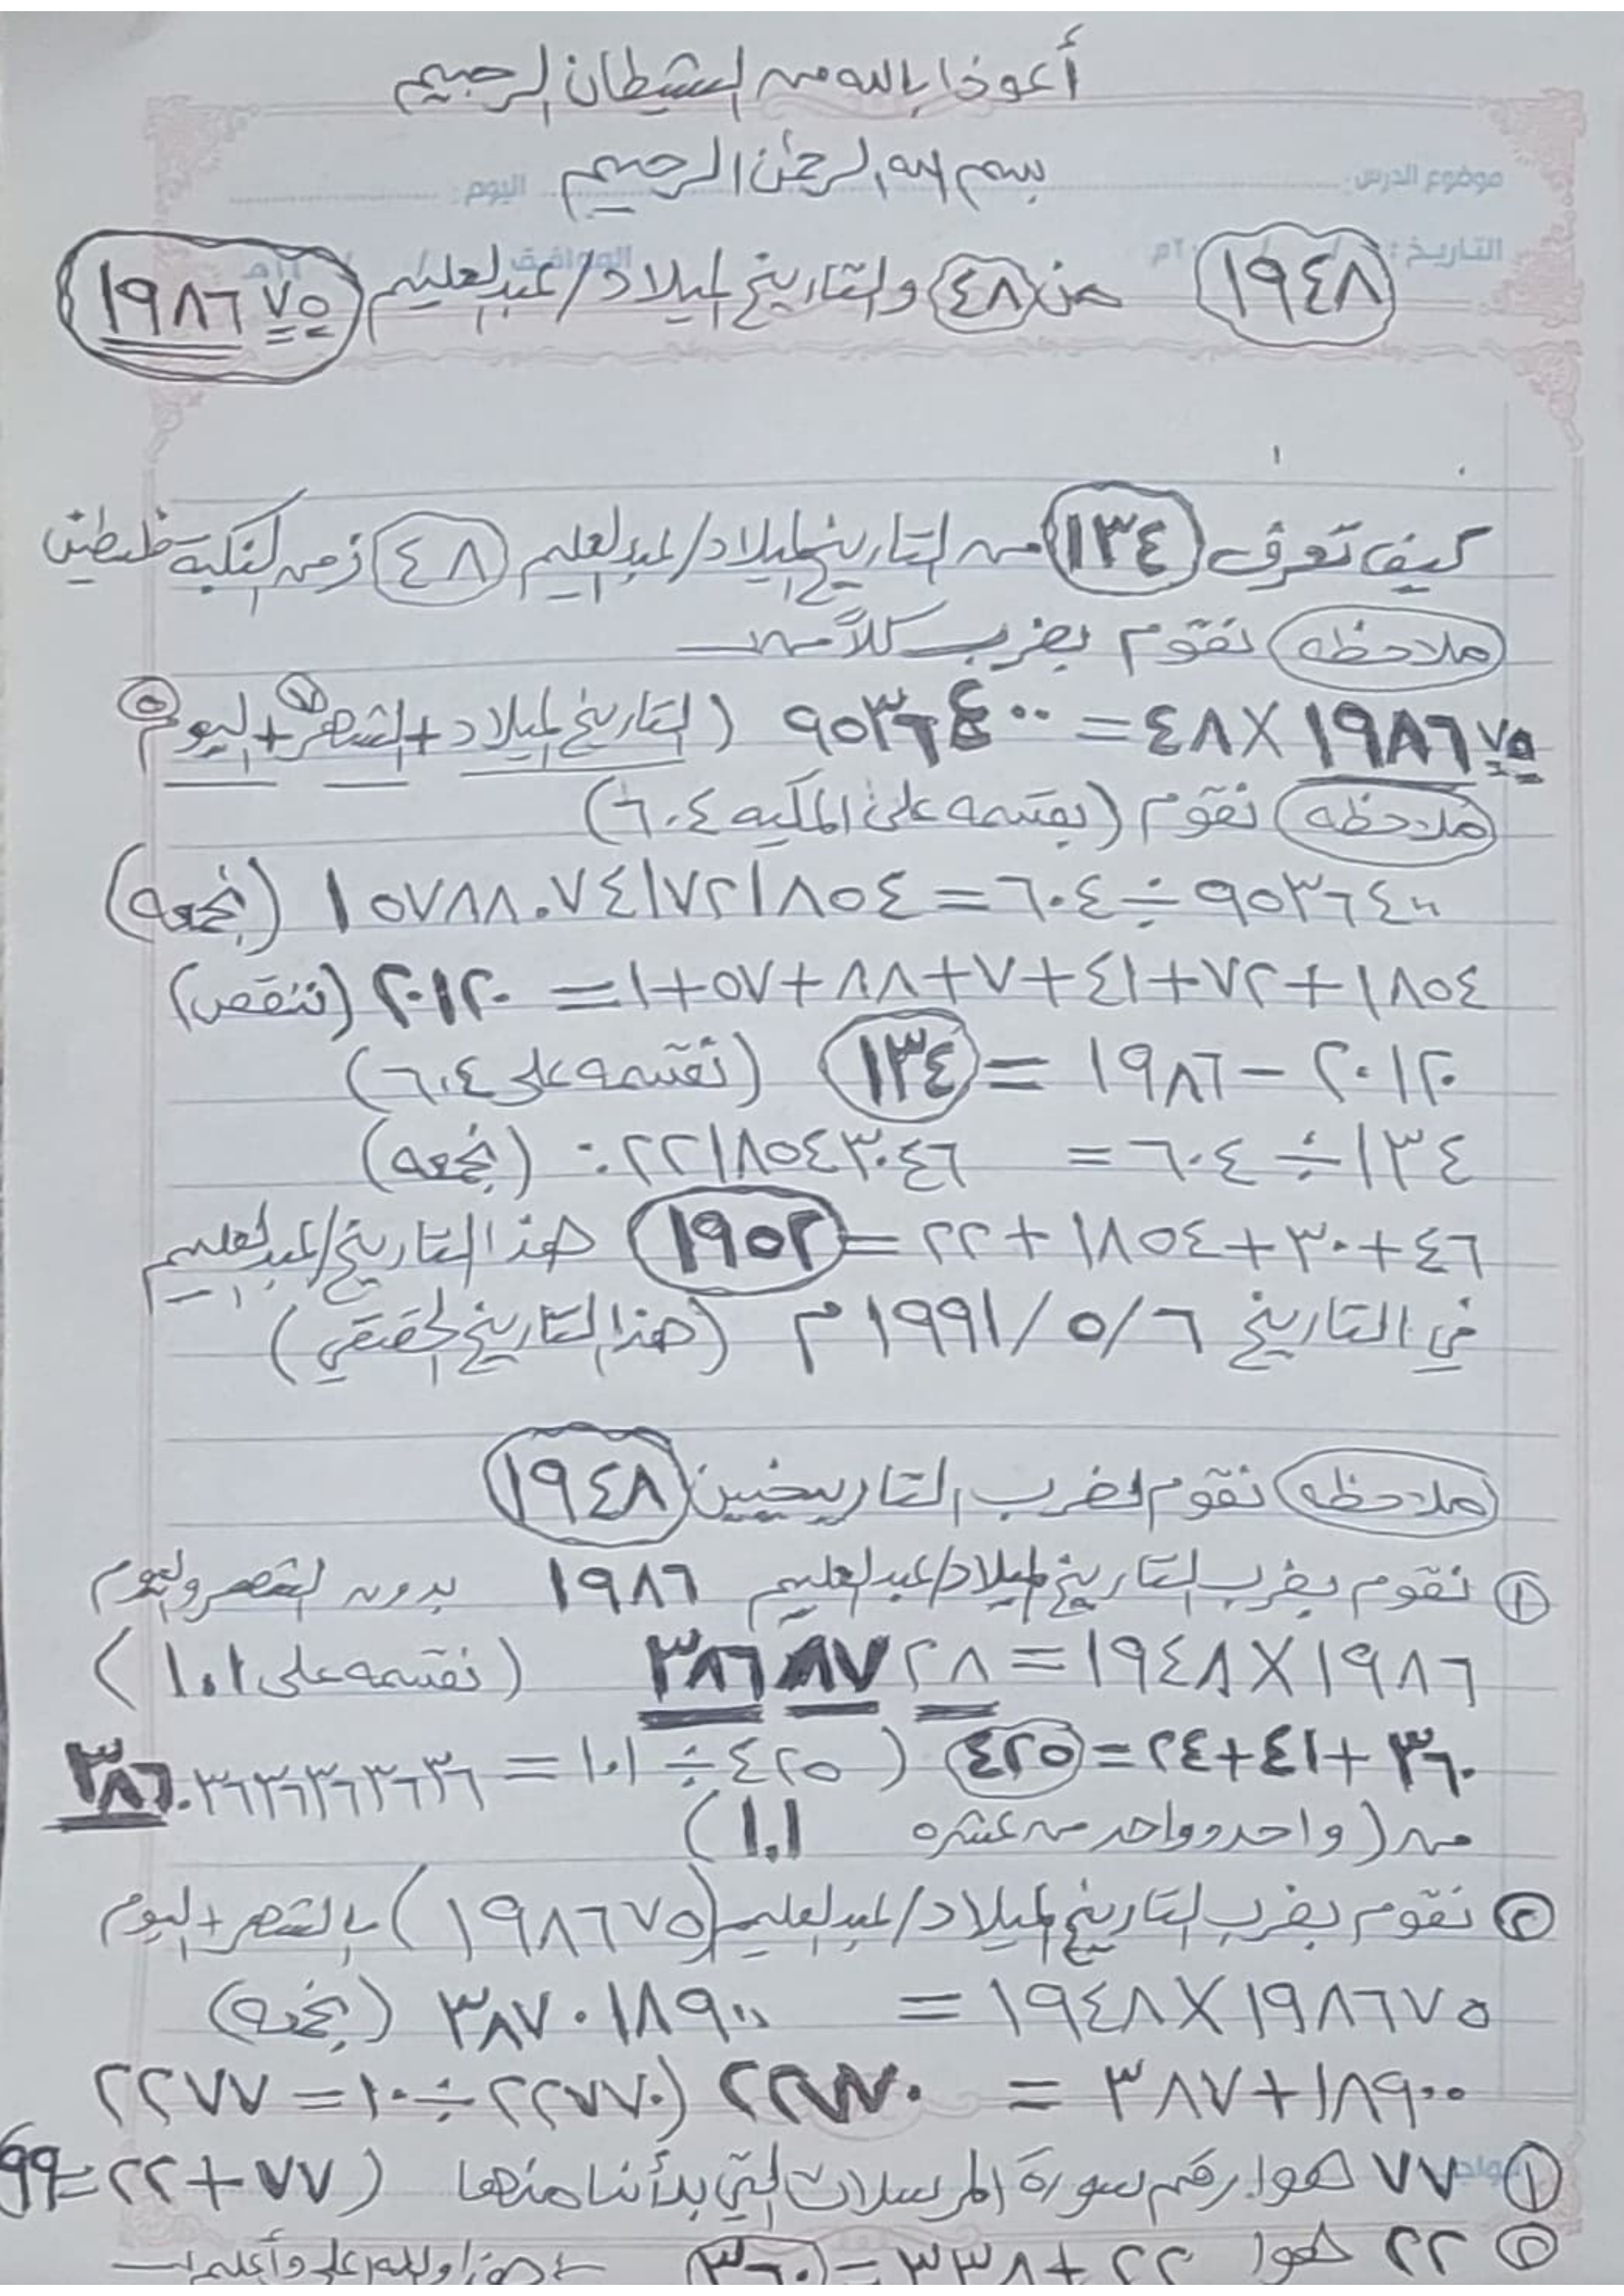 أعوذ بالله من الشيطان الرجيم
بسم الله الرحمن الرحيم
موضوع الدرس: اليوم:
التاريخ: / / ٢٠م الموافق / / ١٤هـ
١٩٤٨ من ٤٨ والتاريخ لميلاد/عبدالعليم ١٩٨٦٧٥
كيف تعرف ١٣٤ من التاريخ لميلاد/عبدالعليم ٤٨ زمن النكبة فلسطين
ملاحظه نقوم بضرب كلاً من
١٩٨٦٧٥ × ٤٨ = ٩٥٣٦٤٠٠ (التاريخ لميلاد + الشهر ٧ + اليوم ٥
ملاحظه نقوم (بقسمه على المكيه ٦٠٤)
٩٥٣٦٤٠٠ ÷ ٦٠٤ = ١٥٧٨٨.٧٤١٧٢١٨٥٤ (نجمعه)
١٨٥٤ + ٧٢ + ٤١ + ٧ + ٨٨ + ٥٧ + ١ = ٢٠١٢٠ (ننقص)
٢٠١٢٠ - ١٩٨٦ = ١٣٤ (نقسمه على ٦٠٤)
١٣٤ ÷ ٦٠٤ = ٠.٢٢١٨٥٤٣٠٤٦ (نجمعه)
٤٦ + ٣٠ + ١٨٥٤ + ٢٢ = ١٩٥٢ هذا التاريخ/عبدالعليم
في التاريخ ٦/٥/١٩٩١م (هذا التاريخ الحقيقي)
ملاحظه نقوم لضرب التاريخين ١٩٤٨
① نقوم بضرب التاريخ لميلاد/عبدالعليم ١٩٨٦ بدون الشهر واليوم
١٩٨٦ × ١٩٤٨ = ٣٨٦٨٧٢٨ (نقسمه على ١.١)
٣٦٠ + ٤١ + ٢٤ = ٤٢٥ (٤٢٥ ÷ ١.١ = ٣٨٦.٣٦٣٦٣٦٣٦٣٦
من (واحد وواحد من عشره ١.١)
② نقوم بضرب التاريخ لميلاد/عبدالعليم (١٩٨٦٧٥) بالشهر + اليوم
١٩٨٦٧٥ × ١٩٤٨ = ٣٨٧٠١٨٩٠٠ (نجمعه)
١٨٩٠٠ + ٣٨٧٠ = ٢٢٧٧٠ (٢٢٧٧٠ ÷ ١٠ = ٢٢٧٧
① ٧٧ هوا رقم سورة المرسلات التي بدأنا منها (٧٧ + ٢٢ = ٩٩)
② ٢٢ هوا ٢٢ + ٣٣٨ = ٣٦٠ هذا والله أعلى وأعلم